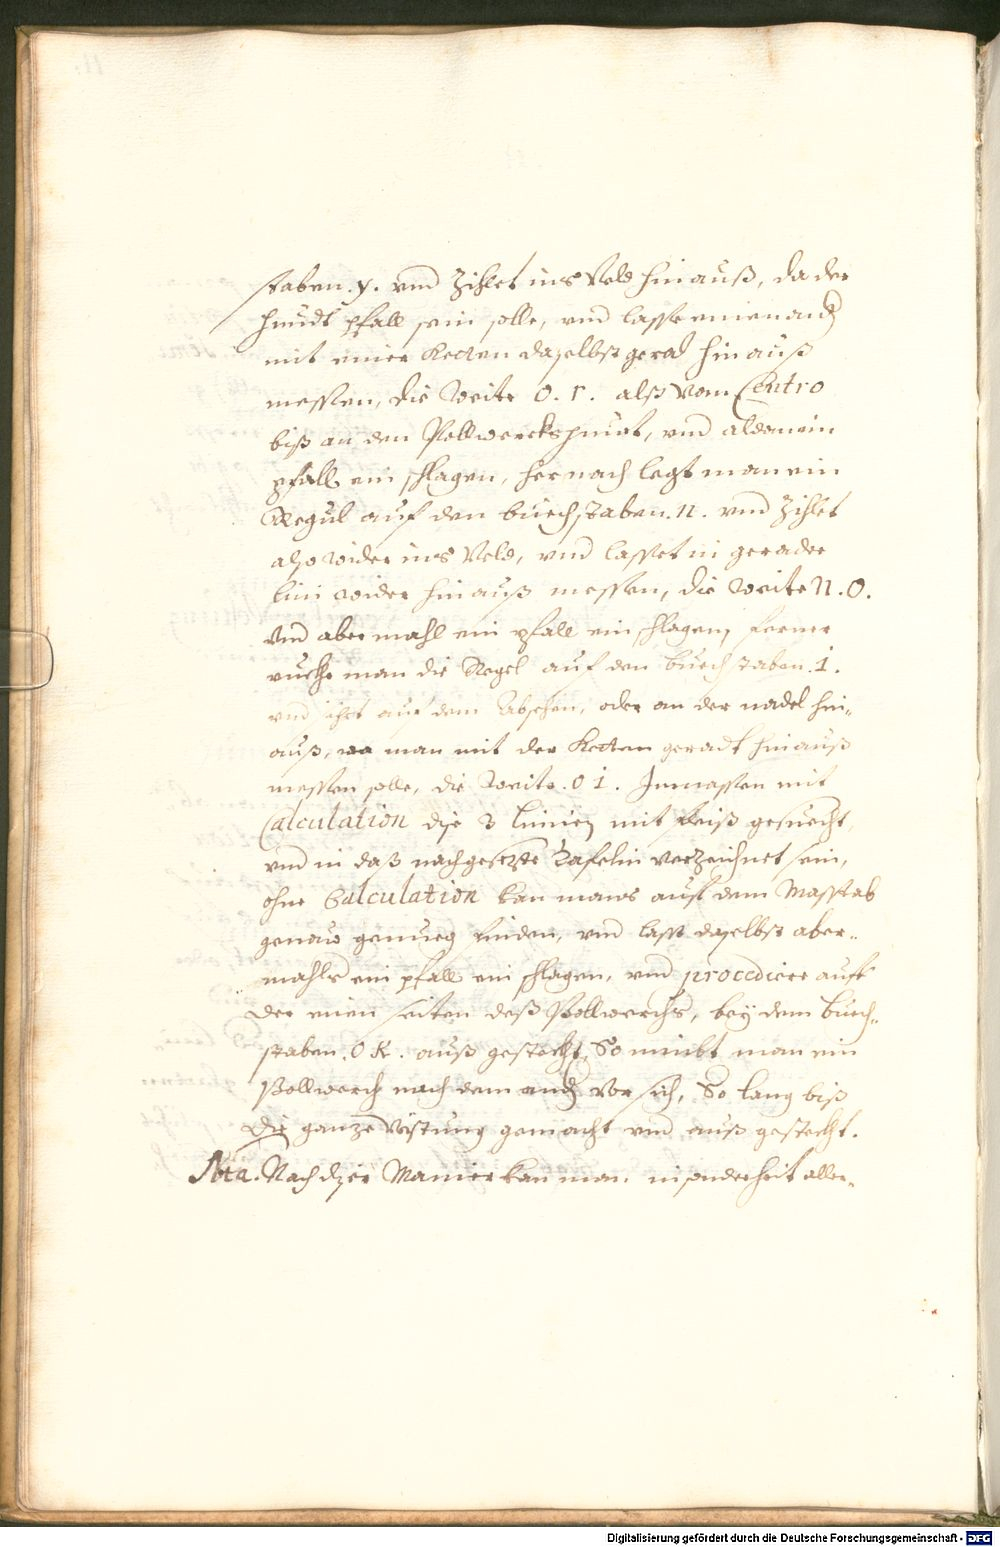 staben. y. vnd Zihlet ins Veld hinauß, da der
hindt pfall sein solle, vnd lasse einen and.
mit einer Ketten daselbst gerad hinauß
messen, die Weite O. r. alß Vom Centro
biß an den Pollwerckspunct, vnd aldann ein
pfall ein schlagen, hernach legt man ein
Regul auf den buechstaben. n. vnd Zihlet
also wider ins Veld, vnd lasset in gerader
lini wider hinauß messen, die Weite N. O.
vnd abermahl ein pfall ein schlagen, ferner
ruckhe man die Regel auf den buechstaben. i.
vnd sihet auf dem Absehen, oder an der nadel hin-
auß, wa man mit der Ketten geradt hinauß
messen solle, die Weite. O i. Inmassen mit
Calculation dise 3 Linien mit fleiß gesuecht,
vnd in daß nachgesezte Tafelin verzeichnet sein,
ohne Calculation kan mans auf dem Masstab
genaw genueg finden, vnd lasst daselbst aber-
mahls ein pfall ein schlagen, vnd procediere auf
der einen seiten deß Pollwerchs, bey dem buech-
staben. O K. auß gesteckht, So nimbt man ein
Pollwerch nach dem and. Vor sich, So lang biß
die ganze Vöstung gemacht vnd auß gesteckht.
Nota. Nach diser Manier kan man insonderheit aller-
Digitalisierung gefördert durch die Deutsche Forschungsgemeinschaft - DFG